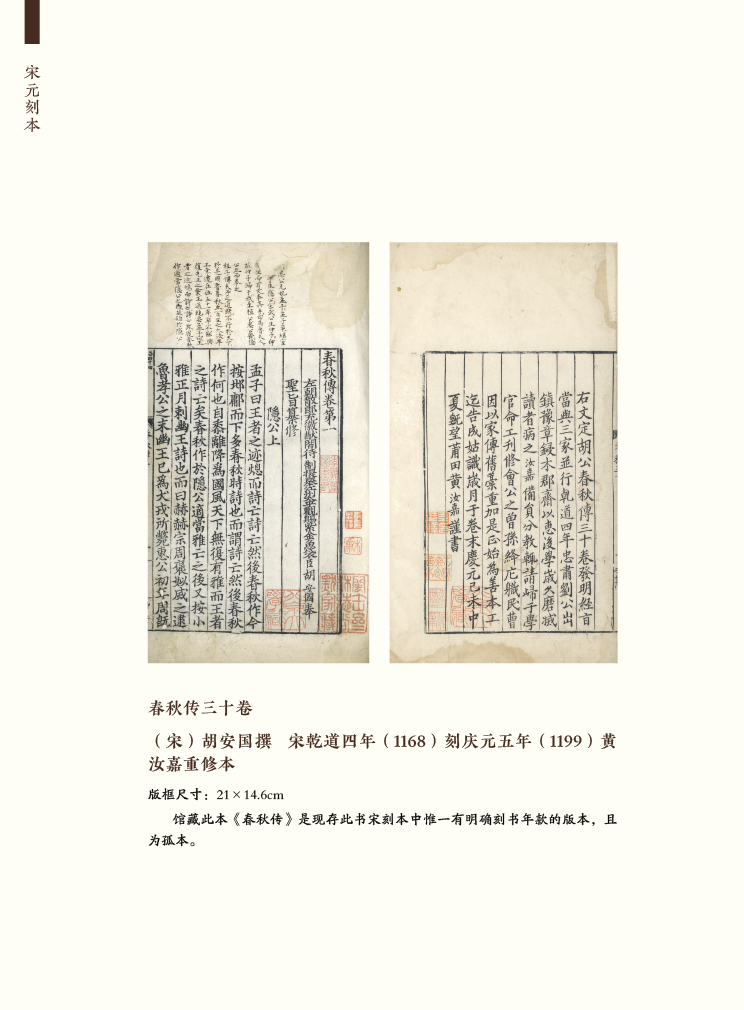 宋元刻本
春秋傳卷第一
左朝散郎充徽猷閣待制提舉江州太平觀賜紫金魚袋臣胡安國奉
聖旨纂修
隱公上
孟子曰王者之迹熄而詩亡詩亡然後春秋作今
按邶鄘而下多春秋時詩也而謂詩亡然後春秋
作何也自黍離降為國風天下無復有雅而王者
之詩亡矣春秋作於隱公適當雅亡之後又按小
雅正月刺幽王詩也而曰赫赫宗周褒姒烕之逮
魯孝公之末幽王已為犬戎所斃惠公初年周既
右文定胡公春秋傳三十卷發明經旨
當與三家並行乾道四年忠肅劉公出
鎮豫章鋟木郡齋以惠後學歲久磨滅
讀者病之汝嘉備員分教輒請歸于學
官命工刊修會公之曾孫絳庀職民曹
因以家傳舊藁重加是正始為善本工
迄告成姑識歲月于卷末慶元己未中
夏既望莆田黃汝嘉謹書
春秋传三十卷
（宋）胡安国撰 宋乾道四年（1168）刻庆元五年（1199）黄
汝嘉重修本
版框尺寸：21×14.6cm
馆藏此本《春秋传》是现存此书宋刻本中惟一有明确刻书年款的版本，且
为孤本。